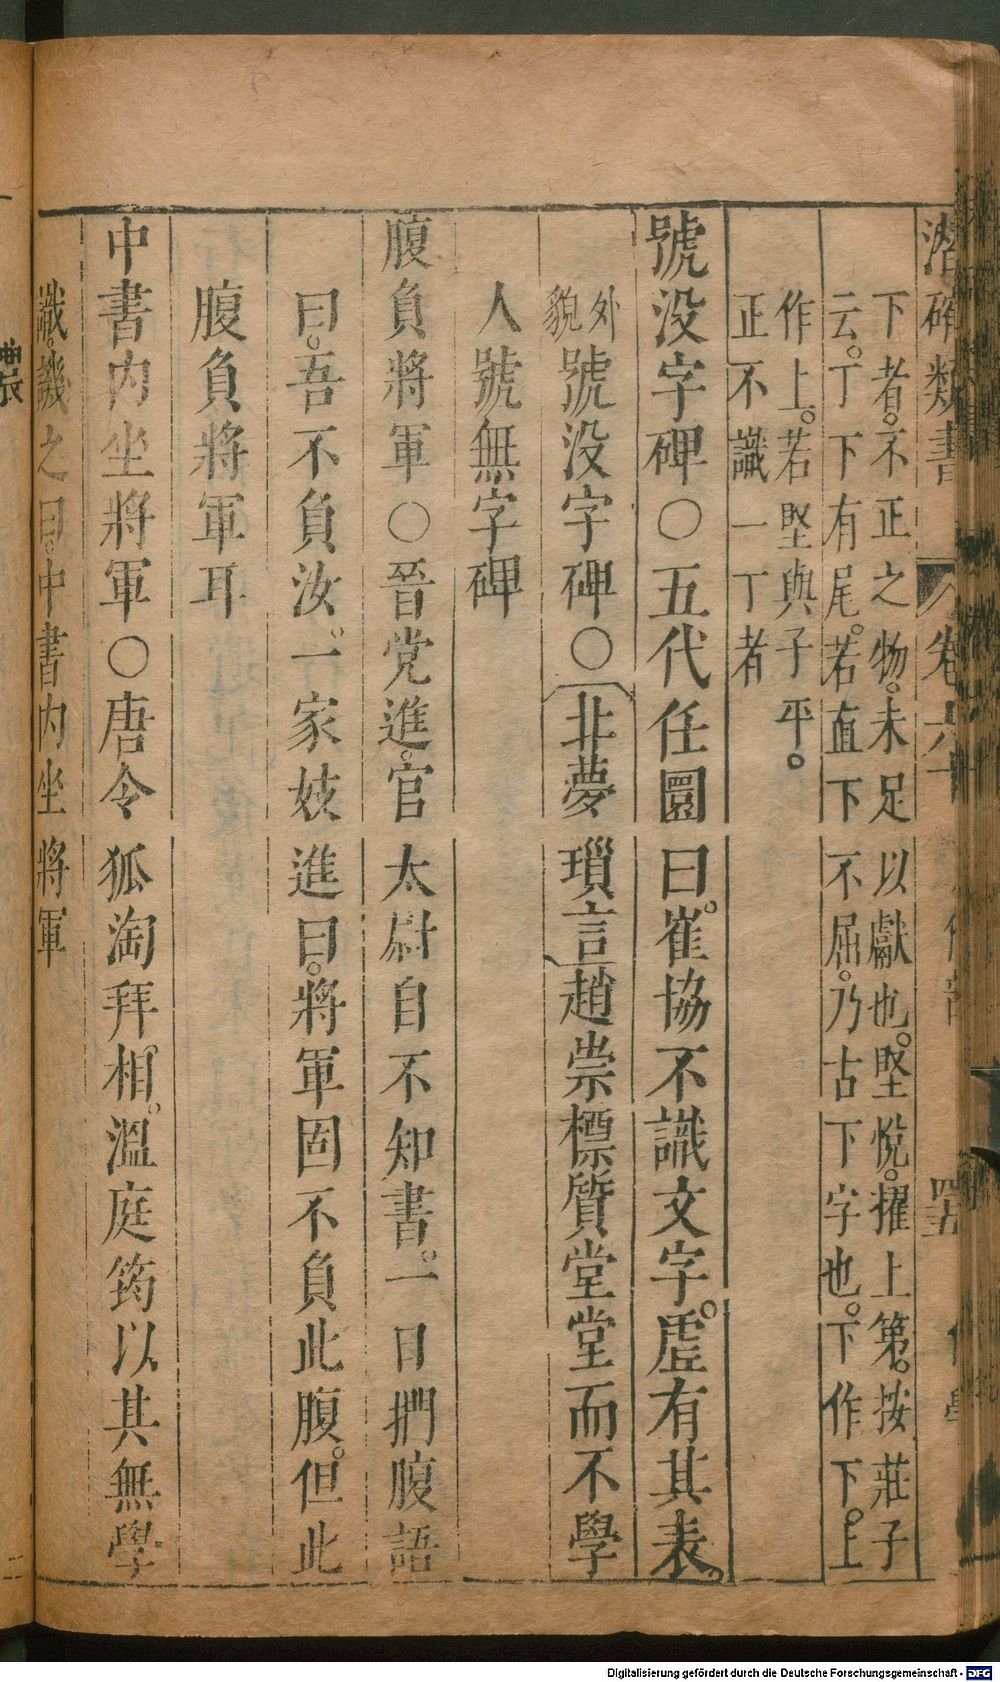 潛確類書 卷六十 四五
下者。不正之物。未足以獻也。堅悅。擢上第。按莊子
云。丁下有尾。若直下不屈。乃古下字也。下作下。上
作上。若堅與子平。
正不識一丁者
號没字碑○五代任圜曰。崔協不識文字。虛有其表。
外貌號没字碑○非夢瑣言趙崇標質堂堂而不學
人號無字碑
腹負將軍○晉党進。官太尉自不知書。一日捫腹語
曰。吾不負汝。一家妓進曰。將軍固不負此腹。但此
腹負將軍耳
中書内坐將軍○唐令狐淘拜相。溫庭筠以其無學
識。譏之曰。中書内坐將軍
Digitalisierung gefördert durch die Deutsche Forschungsgemeinschaft - DFG